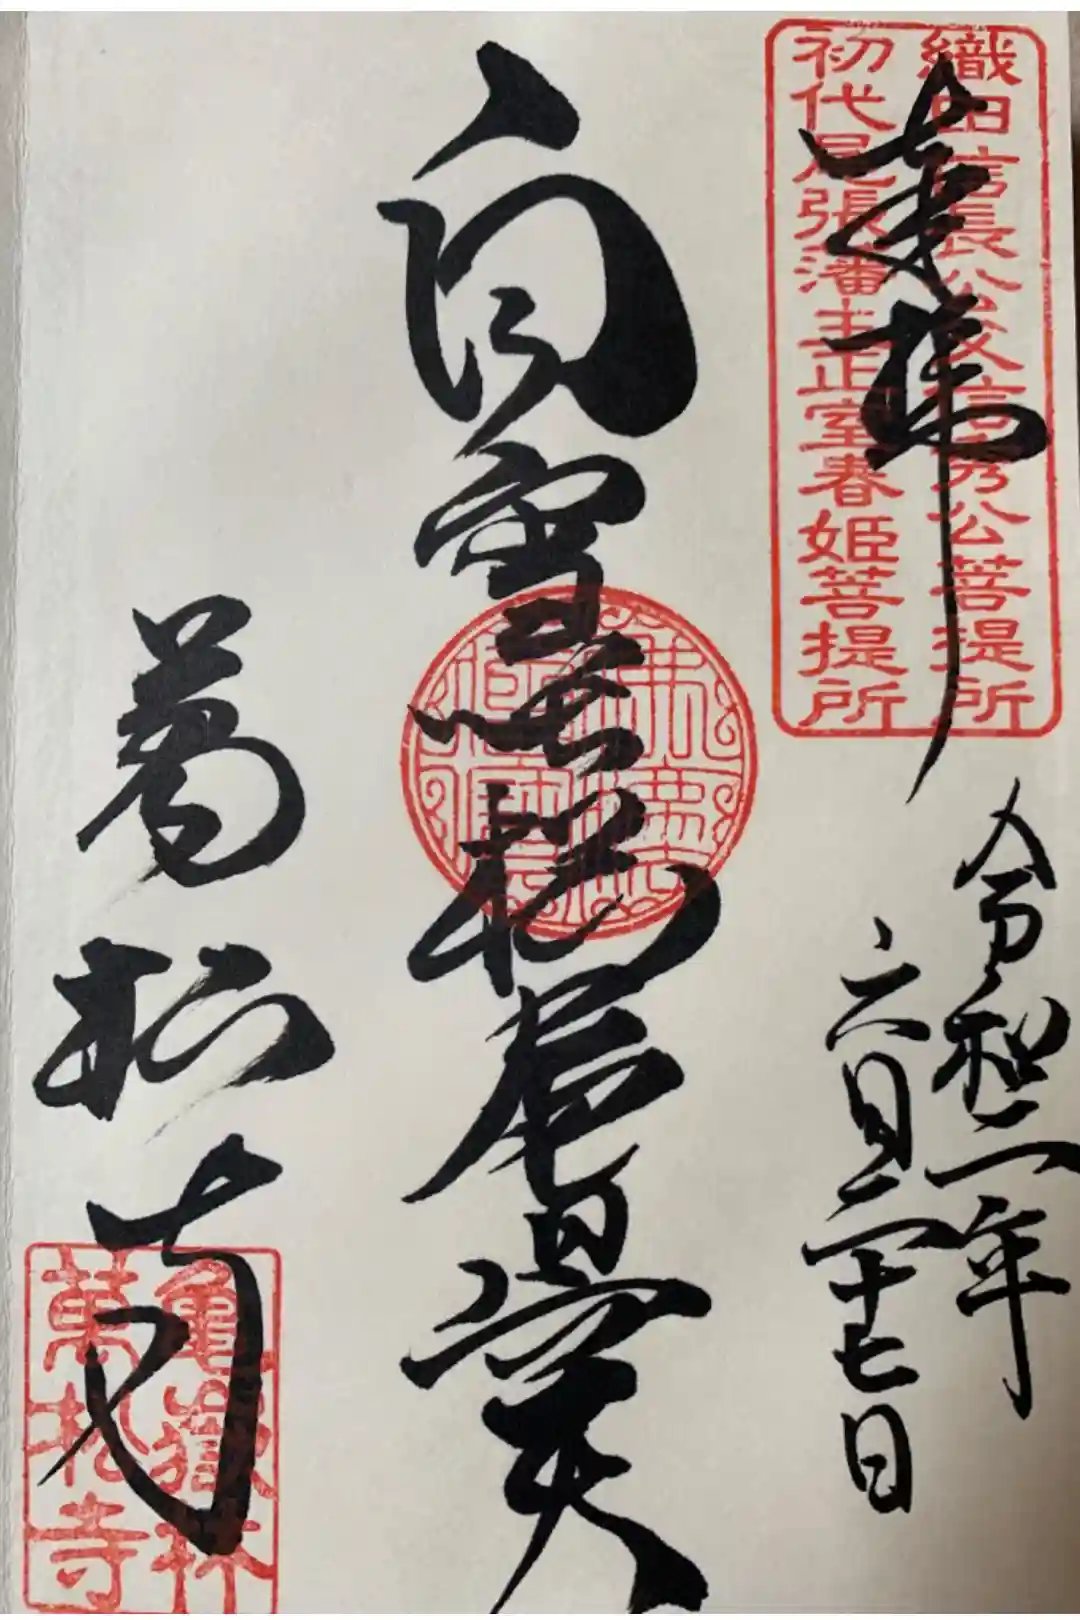 織田信長公父信秀公菩提所
初代尾張藩主正室春姫菩提所
奉拝
令和二年
六月二十七日
白雪
萬松寺
亀嶽林
萬松寺